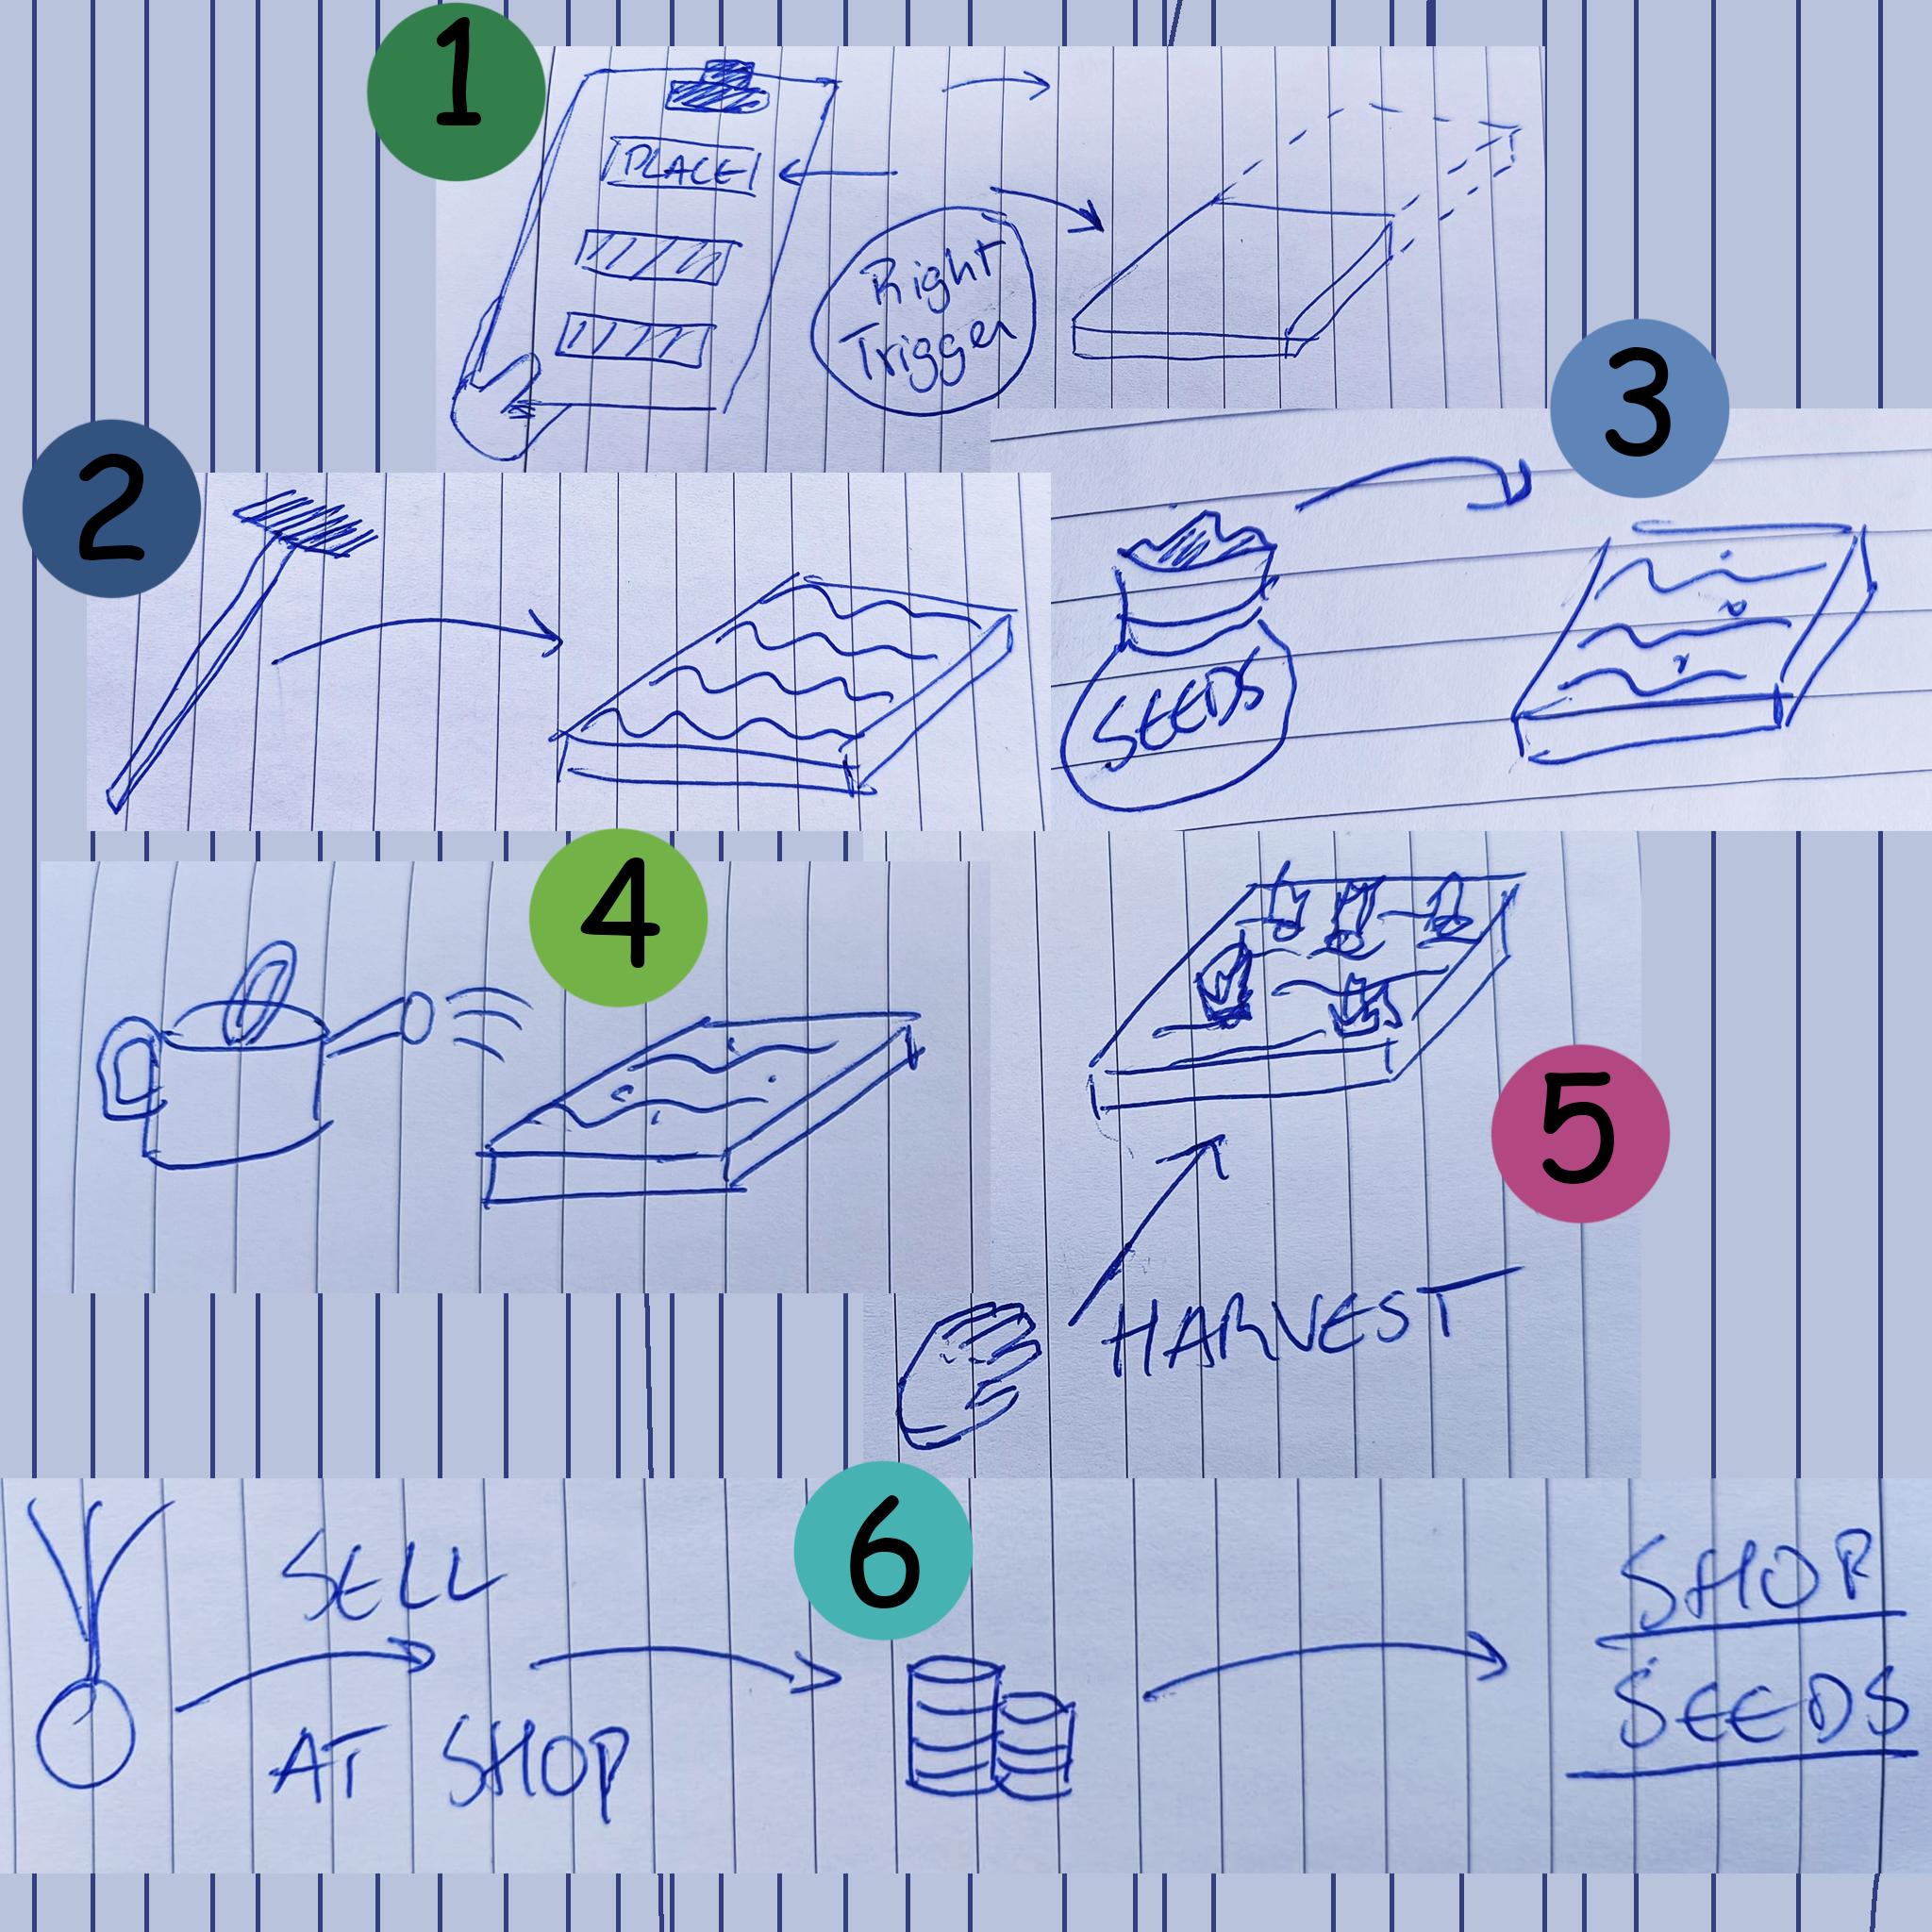 1
PLACE
Right
Trigger
2
3
SEEDS
4
5
HARVEST
6
SELL
AT SHOP
SHOP
SEEDS